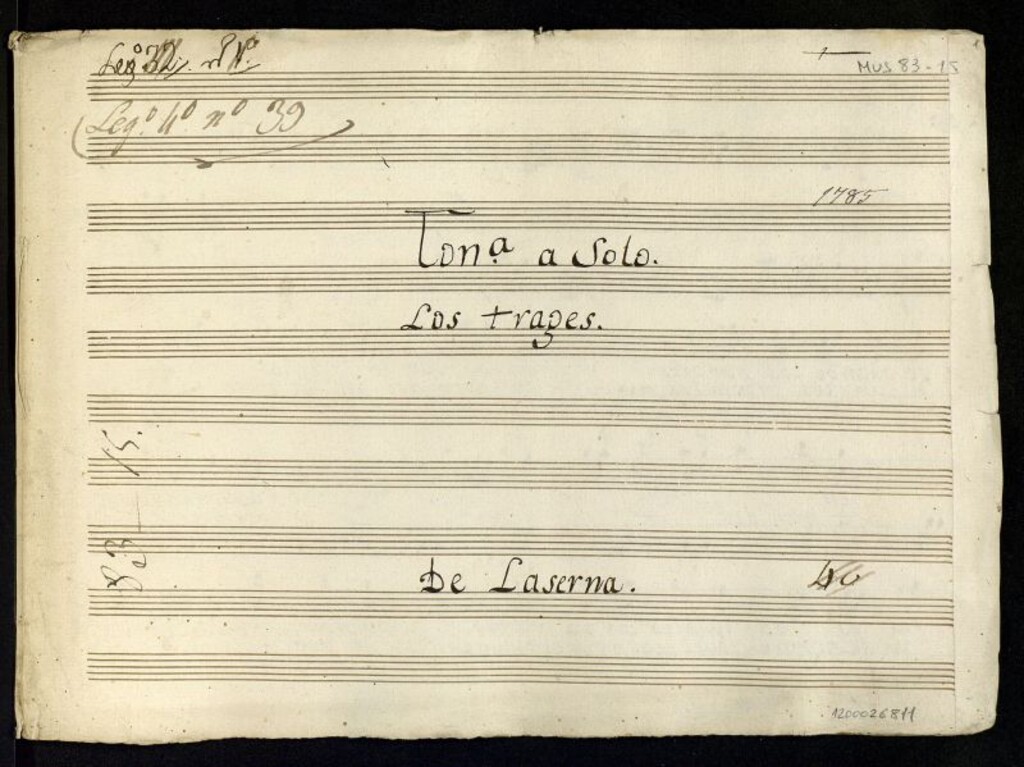 Leg.º 32. nº 1º
MUS 83-15
Leg.º 4º nº 39
1785
Ton.ª a Solo.
Los trages.
83-15.
De Laserna.
46
1200026811